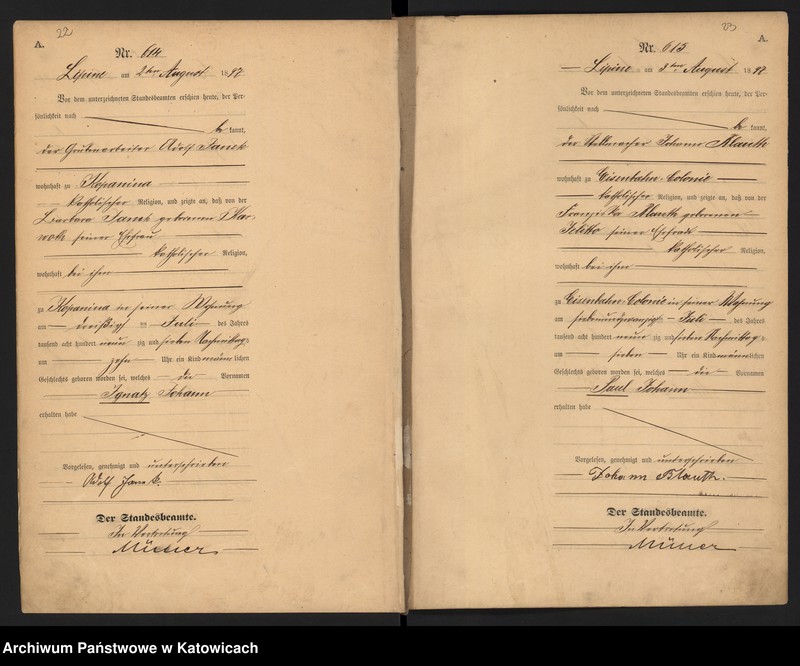 22
A.
Nr. 614
Lipine am 2ten August 1897
Vor dem unterzeichneten Standesbeamten erschien heute, der Per-
sönlichkeit nach
be kannt,
der Grubenarbeiter Adolf Janek
wohnhaft zu Kopanina
katholischer Religion, und zeigte an, daß von der
Barbara Janek geborenen
seiner Ehefrau
katholischer Religion,
wohnhaft bei ihm
zu Kopanina in seiner Wohnung
am dreißigsten Juli des Jahres
tausend acht hundert neun zig und sieben Nachmittags
um zehn Uhr ein Kind männlichen
Geschlechts geboren worden sei, welches die Vornamen
Ignatz Johann
erhalten habe
Vorgelesen, genehmigt und unterschrieben
Adolf Janek.
Der Standesbeamte.
In Vertretung
Müller
23
A.
Nr. 615
Lipine am 3ten August 1897
Vor dem unterzeichneten Standesbeamten erschien heute, der Per-
sönlichkeit nach
be kannt,
der Stellmacher Johann Blauth
wohnhaft zu Eisenbahn-Colonie
katholischer Religion, und zeigte an, daß von der
Franziska Blauth geborenen
seiner Ehefrau
katholischer Religion,
wohnhaft bei ihm
zu Eisenbahn-Colonie in seiner Wohnung
am siebenundzwanzigsten Juli des Jahres
tausend acht hundert neun zig und sieben Nachmittags
um sieben Uhr ein Kind männlichen
Geschlechts geboren worden sei, welches die Vornamen
Paul Johann
erhalten habe
Vorgelesen, genehmigt und unterschrieben
Johann Blauth.
Der Standesbeamte.
In Vertretung
Müller
Archiwum Państwowe w Katowicach